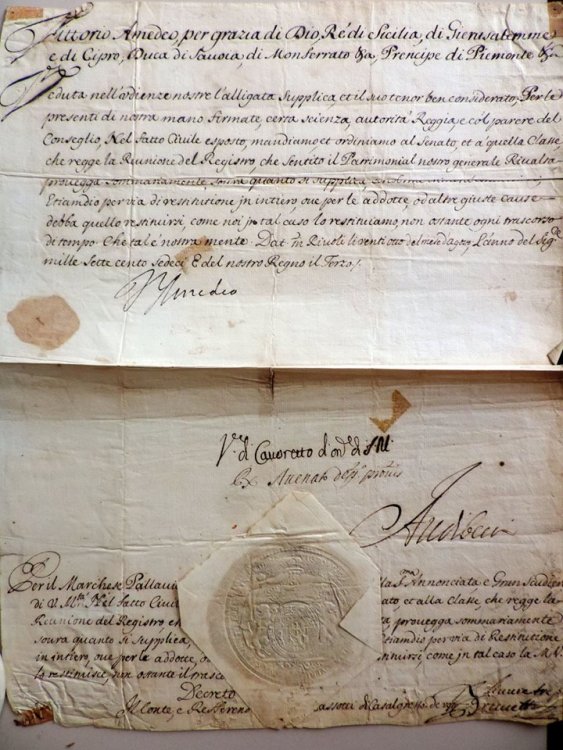 Vittorio Amedeo, per grazia di Dio, Rè di Sicilia, di Gierusalemme
e di Cipro, Duca di Savoia, di Monferrato &a, Prencipe di Piemonte &a
Veduta nell'Udienze nostre l'alligata Supplica, et il suo tenor ben considerato, Per le
presenti di nostra mano firmate, certa scienza, autorità Reggia, e col parere del
Conseglio, Nel fatto Civile esposto, mandiamo, et ordiniamo al Senato, et a quella Classe,
che regge la Reunione del Registro che Sentito il Patrimonial nostro generale Rivalta
provegga sommariamente sovra quanto si supplica
Etiamdio per via di restitutione in intiero, ove per le addotte, od altre giuste cause
debba quello restituirsi, come noi jn tal caso lo restituiamo, non ostante ogni trascorso
di tempo. Che tal è nostra mente. Dat. in Rivoli li venti otto del mese d'Agosto L'anno del Sig.re
mille Sette cento Sedeci E del nostro Regno il Terzo.
V Amedeo
V.a di Cavoretto d'ord.e di S. M.
Per il Marchese Pallavi
la S.ma Annonciata e Gran Scudier
di V. M.tà Nel fatto Civil
ato, et alla Classe, che regge la
Reunione del Registro ch
a, provegga sommariamente
sovra quanto si Supplica,
Etiamdio per via di Restitutione
in intiero, ove per le addotte, o
tuirsi come jn tal caso la M.V.
lo restituisce, non ostante il trasc
Decreto
Il Conte, e Refferend
di Casalgrasso